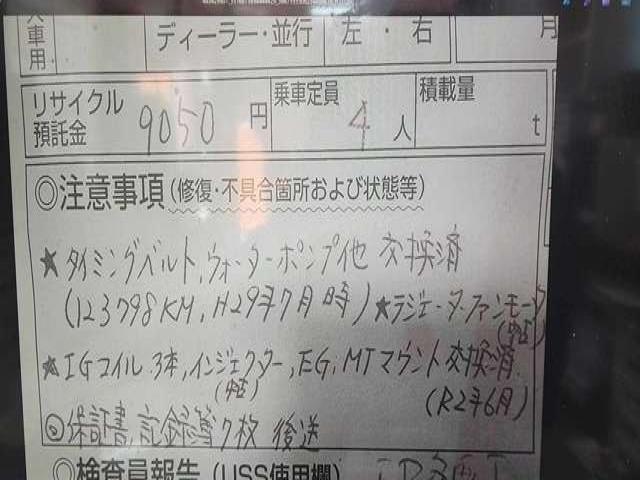 車用 ディーラー・並行 左・右 月
リサイクル預託金 9050 円 乗車定員 4 人 積載量 t
◎注意事項(修復・不具合箇所および状態等)
★タイミングベルト、ウォーターポンプ他 交換済
(123798KM, H29年7月時) ★ラジェーターファンモータ
★IGコイル3本,インジェクター,EG,MTマウント交換済
(R2年6月)
◎保証書,記録簿7枚 後送
◎検査員報告(USS使用欄)